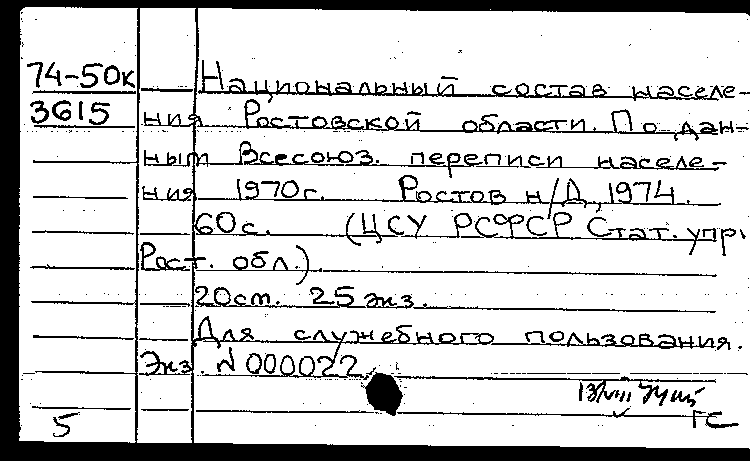 74-50к Национальный состав населе-
3615 ния Ростовской области. По дан-
ным Всесоюз. переписи населе-
ния 1970г. Ростов н/Д, 1974.
60с. (ЦСУ РСФСР Стат. упр.
Рост. обл.)
20см. 25 экз.
Для служебного пользования.
Экз. № 000022
13/VIII
5 ГС